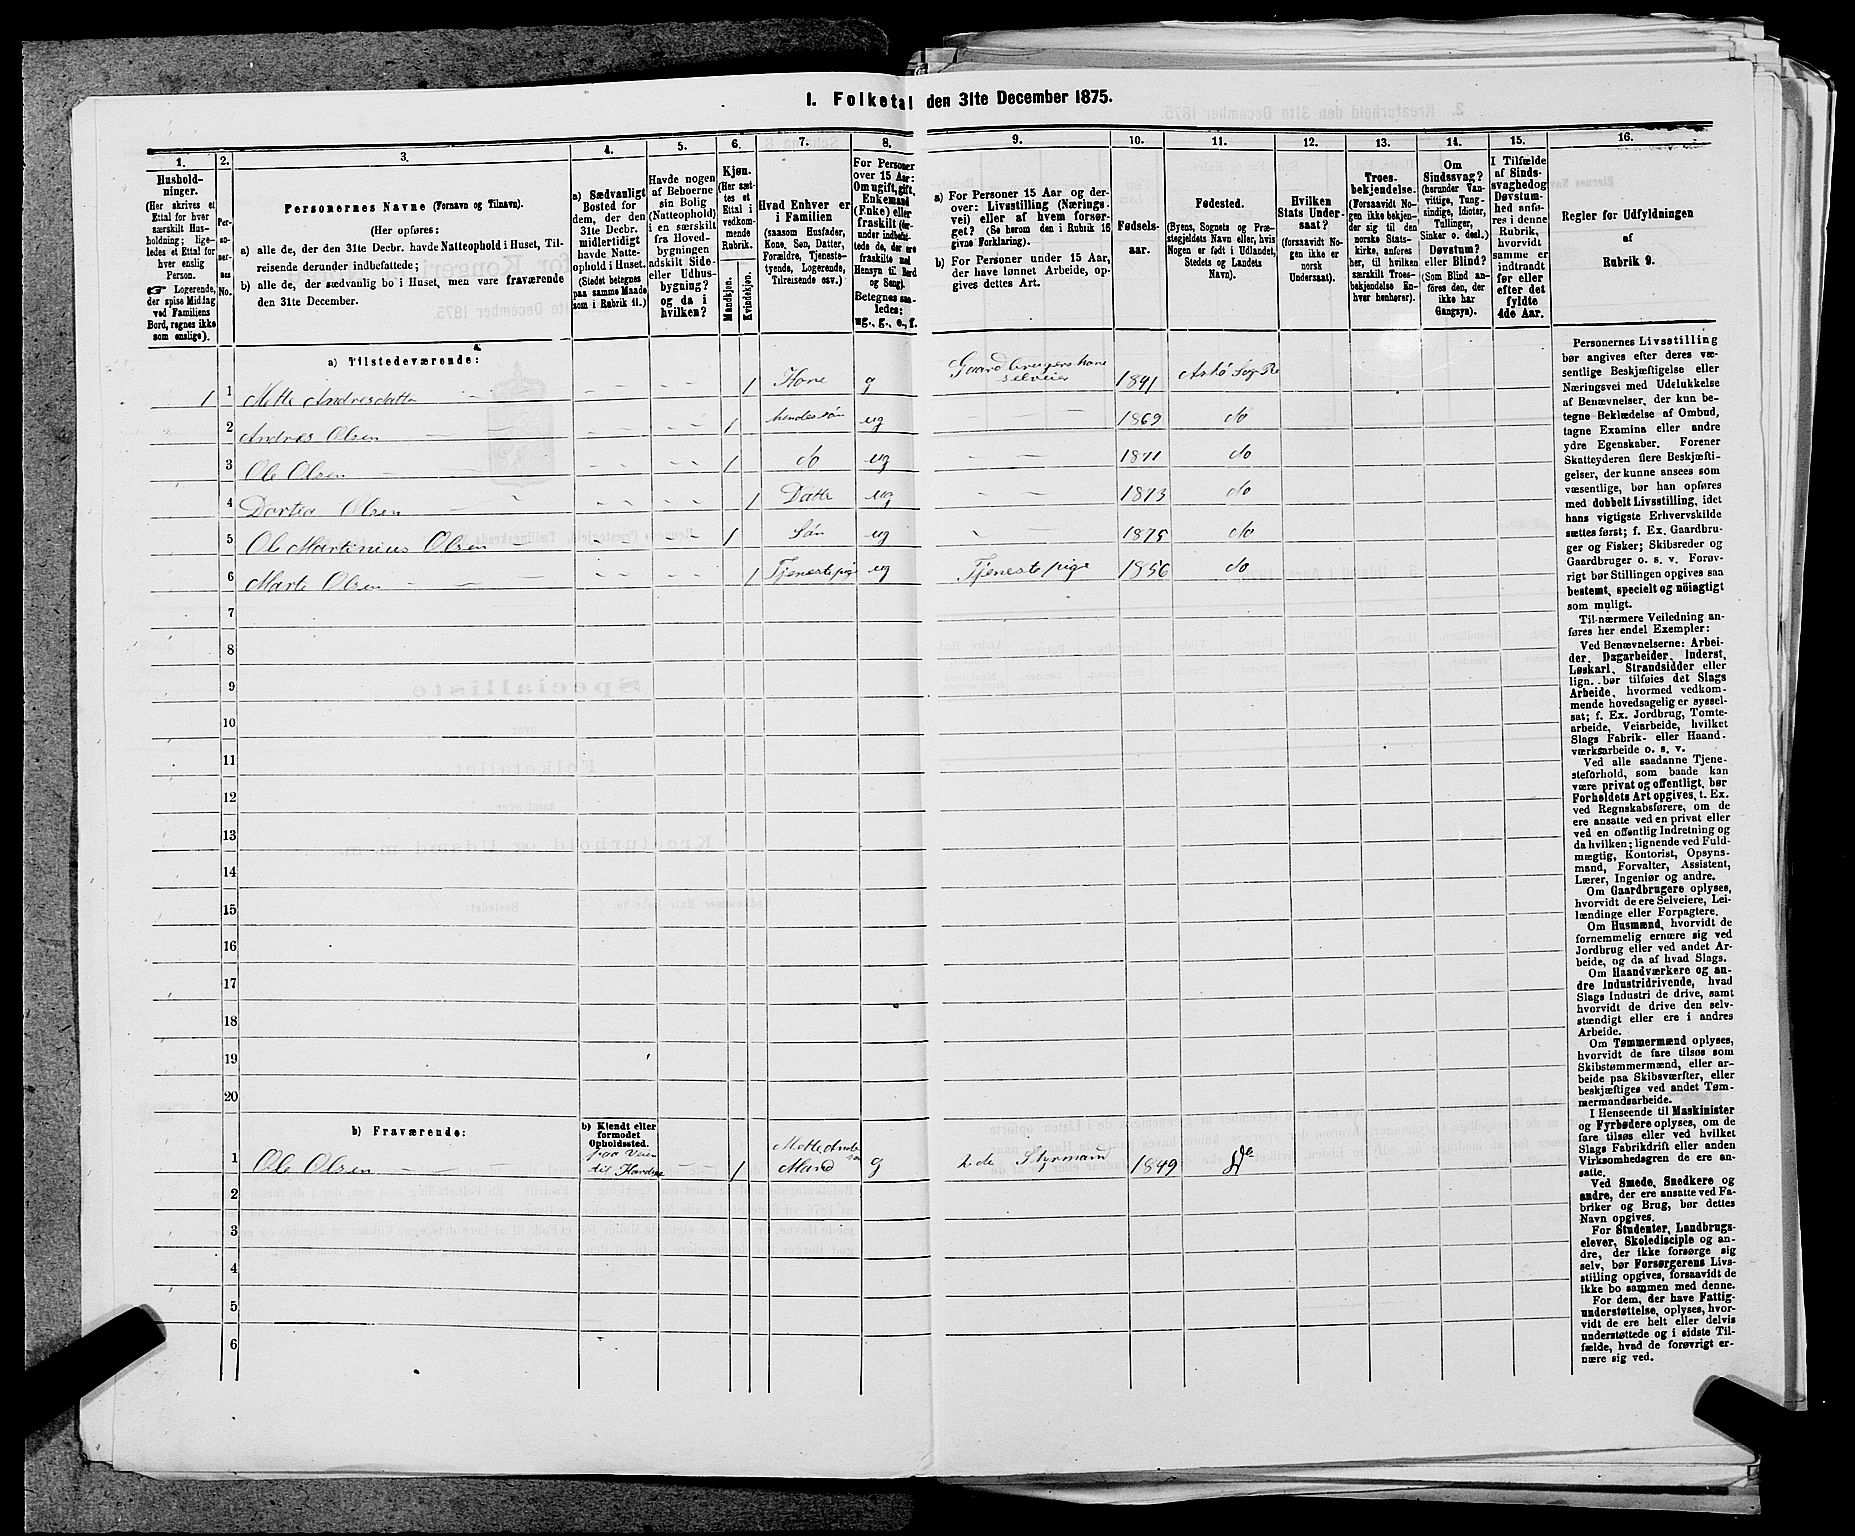 I. Folketal den 31te December 1875.
1. 2. 3. 4. 5. 6. 7. 8. 9. 10. 11. 12. 13. 14. 15. 16.
Hushold-
ninger.
(Her skrives et
Ettal for hver
særskilt Hus-
holdning; lige-
ledes et Ettal for
hver enslig
Person.
☞ Logerende,
der spise Middag
ved Familiens
Bord, regnes ikke
som enslige).
Per-
so-
ner-
nes
No.
Personernes Navne (Fornavn og Tilnavn).
(Her opføres:
a) alle de, der den 31te Decbr. havde Natteophold i Huset, Til-
reisende derunder indbefattede;
b) alle de, der sædvanlig bo i Huset, men vare fraværende
den 31te December.
a) Sædvanligt
Bosted for
dem, der den
31te Decbr.
midlertidigt
havde Natte-
ophold i Huset.
(Stedet betegnes
paa samme Maade
som i Rubrik 11.)
Havde nogen
af Beboerne
sin Bolig
(Natteophold)
i en særskilt
fra Hoved-
bygningen
adskilt Side-
eller Udhus-
bygning?
og da i
hvilken?
Kjøn.
(Her sæt-
tes et
Ettal i
vedkom-
mende
Rubrik.
Mandkjøn.
Kvindekjøn.
Hvad Enhver er
i Familien
(saasom Husfader,
Kone, Søn, Datter,
Forældre, Tjeneste-
tyende, Logerende,
Tilreisende osv.)
For Personer
over 15 Aar:
Om ugift, gift,
Enkemand
(Enke) eller
fraskilt (her-
under indbefat-
tede de, der ere
fraskilte med
Hensyn til Bord
og Seng).
Betegnes saa-
ledes:
ug., g., e., f.
a) For Personer 15 Aar og der-
over: Livsstilling (Nærings-
vei) eller af hvem forsør-
get? (Se herom den i Rubrik 16
givne Forklaring).
b) For Personer under 15 Aar,
der have lønnet Arbeide, op-
gives dettes Art.
Fødsels-
aar.
Fødested.
(Byens, Sognets og Præ-
stegjeldets Navn eller, hvis
Nogen er født i Udlandet,
Stedets og Landets
Navn).
Hvilken
Stats Under-
saat?
(forsaavidt No-
gen ikke er
norsk
Undersaat).
Troes-
bekjendelse.
(Forsaavidt No-
gen ikke bekjen-
der sig til den
norske Stats-
kirke, anføres
her, til hvilken
særskilt Troes-
bekjendelse En-
hver henhører).
Om
Sindssvag?
(herunder Van-
vittige, Tung-
sindige, Idioter,
Tullinger,
Sinker o. desl.)
Døvstum?
eller Blind?
(Som Blind an-
føres den, der
ikke har
Gangsyn).
I Tilfælde
af Sinds-
svaghed og
Døvstum-
hed anfø-
res i denne
Rubrik,
hvorvidt
samme er
indtraadt
før eller
efter det
fyldte
4de Aar.
Regler for Udfyldningen
af
Rubrik 9.
a) Tilstedeværende:
1 1 Mette Andresdatter 1 Kone g Gaardbrugerskone selveier 1841
2 Andreas Olsen 1 hendes søn ug 1869 do
3 Ole Olsen 1 do ug 1871 do
4 Dortea Olsen 1 Datte ug 1873 do
5 Ole Martinius Olsen 1 Søn ug 1875 do
6 Marte Olsen 1 Tjenestepige ug Tjenestepige 1856 do
7
8
9
10
11
12
13
14
15
16
17
18
19
20
b) Fraværende:
b) Kjendt eller
formodet
Opholdssted.
1 Ole Olsen paa Veien til 1 Mette Mand g 2de Styrmand 1849
2
3
4
5
6
Personernes Livsstilling
bør angives efter deres væ-
sentlige Beskjæftigelse eller
Næringsvei med Udelukkelse
af Benævnelser, der kun be-
tegne Beklædelse af Ombud,
tagne Examina eller andre
ydre Egenskaber. Forener
Skatteyderen flere Beskjæfti-
gelser, der kunne ansees som
væsentlige, bør han opføres
med dobbelt Livsstilling, idet
hans vigtigste Erhvervskilde
sættes først; f. Ex. Gaardbru-
ger og Fisker; Skibsreder og
Gaardbruger o. s. v. Forøv-
rigt bør Stillingen opgives saa
bestemt, specielt og nöiagtigt
som muligt.
Til nærmere Veiledning an-
føres her endel Exempler:
Ved Benævnelserne: Arbei-
der, Dagarbeider, Inderst,
Løskarl, Strandsidder eller
lign. bør tilføies det Slags
Arbeide, hvormed vedkom-
mende hovedsagelig er syssel-
sat; f. Ex. Jordbrug, Tomte-
arbeide, Veiarbeide, hvilket
Slags Fabrik- eller Haand-
værksarbeide o. s. v.
Ved alle saadanne Tjene-
steforhold, som baade kan
være privat og offentligt, bør
Forholdets Art opgives, t. Ex.
ved Regnskabsførere, om de
ere ansatte ved en privat eller
ved en offentlig Indretning og
da hvilken; lignende ved Fuld-
mægtig, Kontorist, Opsyns-
mand, Forvalter, Assistent,
Lærer, Ingeniør og andre.
Om Gaardbrugere oplyses,
hvorvidt de ere Selveiere, Lei-
lændinge eller Forpagtere.
Om Husmænd, hvorvidt de
fornemmelig ernære sig ved
Jordbrug eller ved andet Ar-
beide, og da af hvad Slags.
Om Haandværkere og an-
dre Industridrivende, hvad
Slags Industri de drive, samt
hvorvidt de drive den selv-
stændigt eller ere i andres
Arbeide.
Om Tømmermænd oplyses,
hvorvidt de fare tilsøs som
Skibstømmermænd, eller ar-
beide paa Skibsværfter, eller
beskjæftiges ved andet Tøm-
mermandsarbeide.
I Henseende til Maskinister
og Fyrbødere oplyses, om de
fare tilsøs eller ved hvilket
Slags Fabrikdrift eller anden
Virksomhedsgren de ere an-
satte.
Ved Smede, Snedkere og
andre, der ere ansatte ved Fa-
briker og Brug, bør dettes
Navn opgives.
For Studenter, Landbrugs-
elever, Skoledisciple og an-
dre, der ikke forsørge sig
selv, bør Forsørgerens Livs-
stilling opgives, forsaavidt de
ikke bo sammen med denne.
For dem, der have Fattig-
understøttelse, oplyses, hvor-
vidt de ere helt eller delvis
understøttede og i sidste Til-
fælde, hvad de forøvrigt er-
nære sig ved.